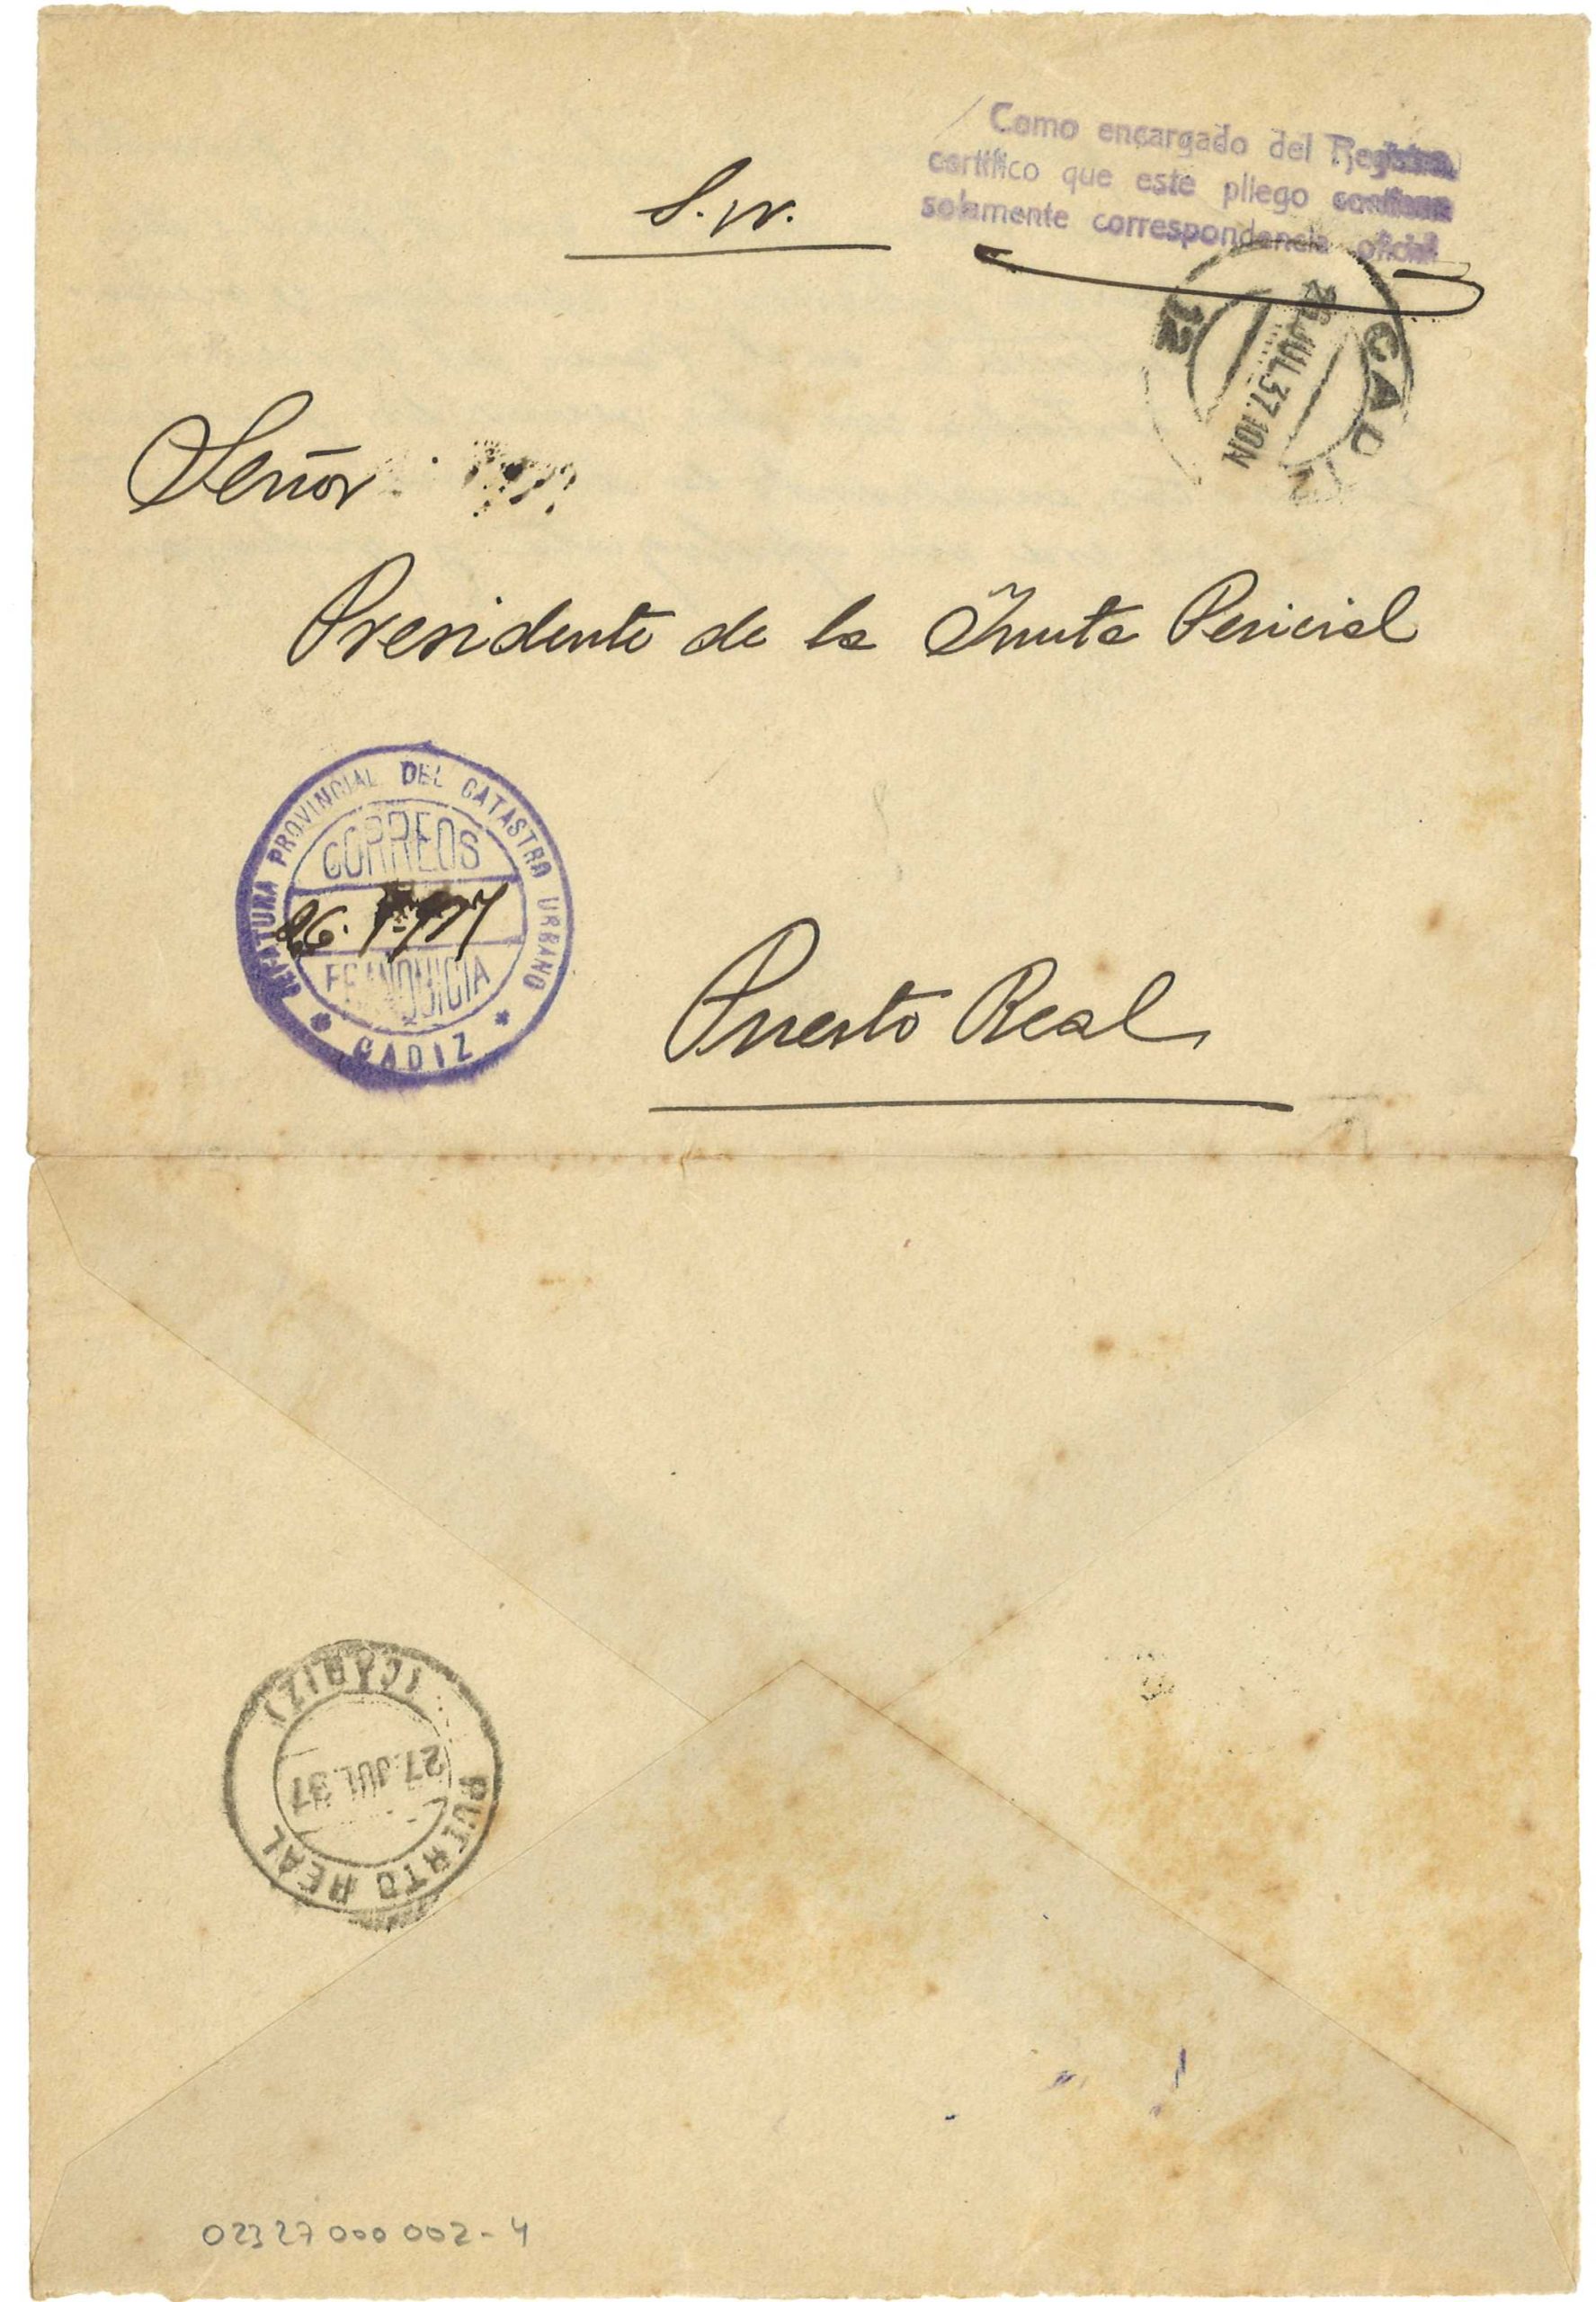 Como encargado del Registro,
certifico que este pliego contiene
solamente correspondencia oficial
S. N.
CADIZ
12
26 JUL 37.10N
Señor
Presidente de la Junta Pericial
JEFATURA PROVINCIAL DEL CATASTRO URBANO
CORREOS
26.
FRANQUICIA
* CADIZ *
Puerto Real
(CADIZ)
27 JUL 37
PUERTO REAL
02327000002-4